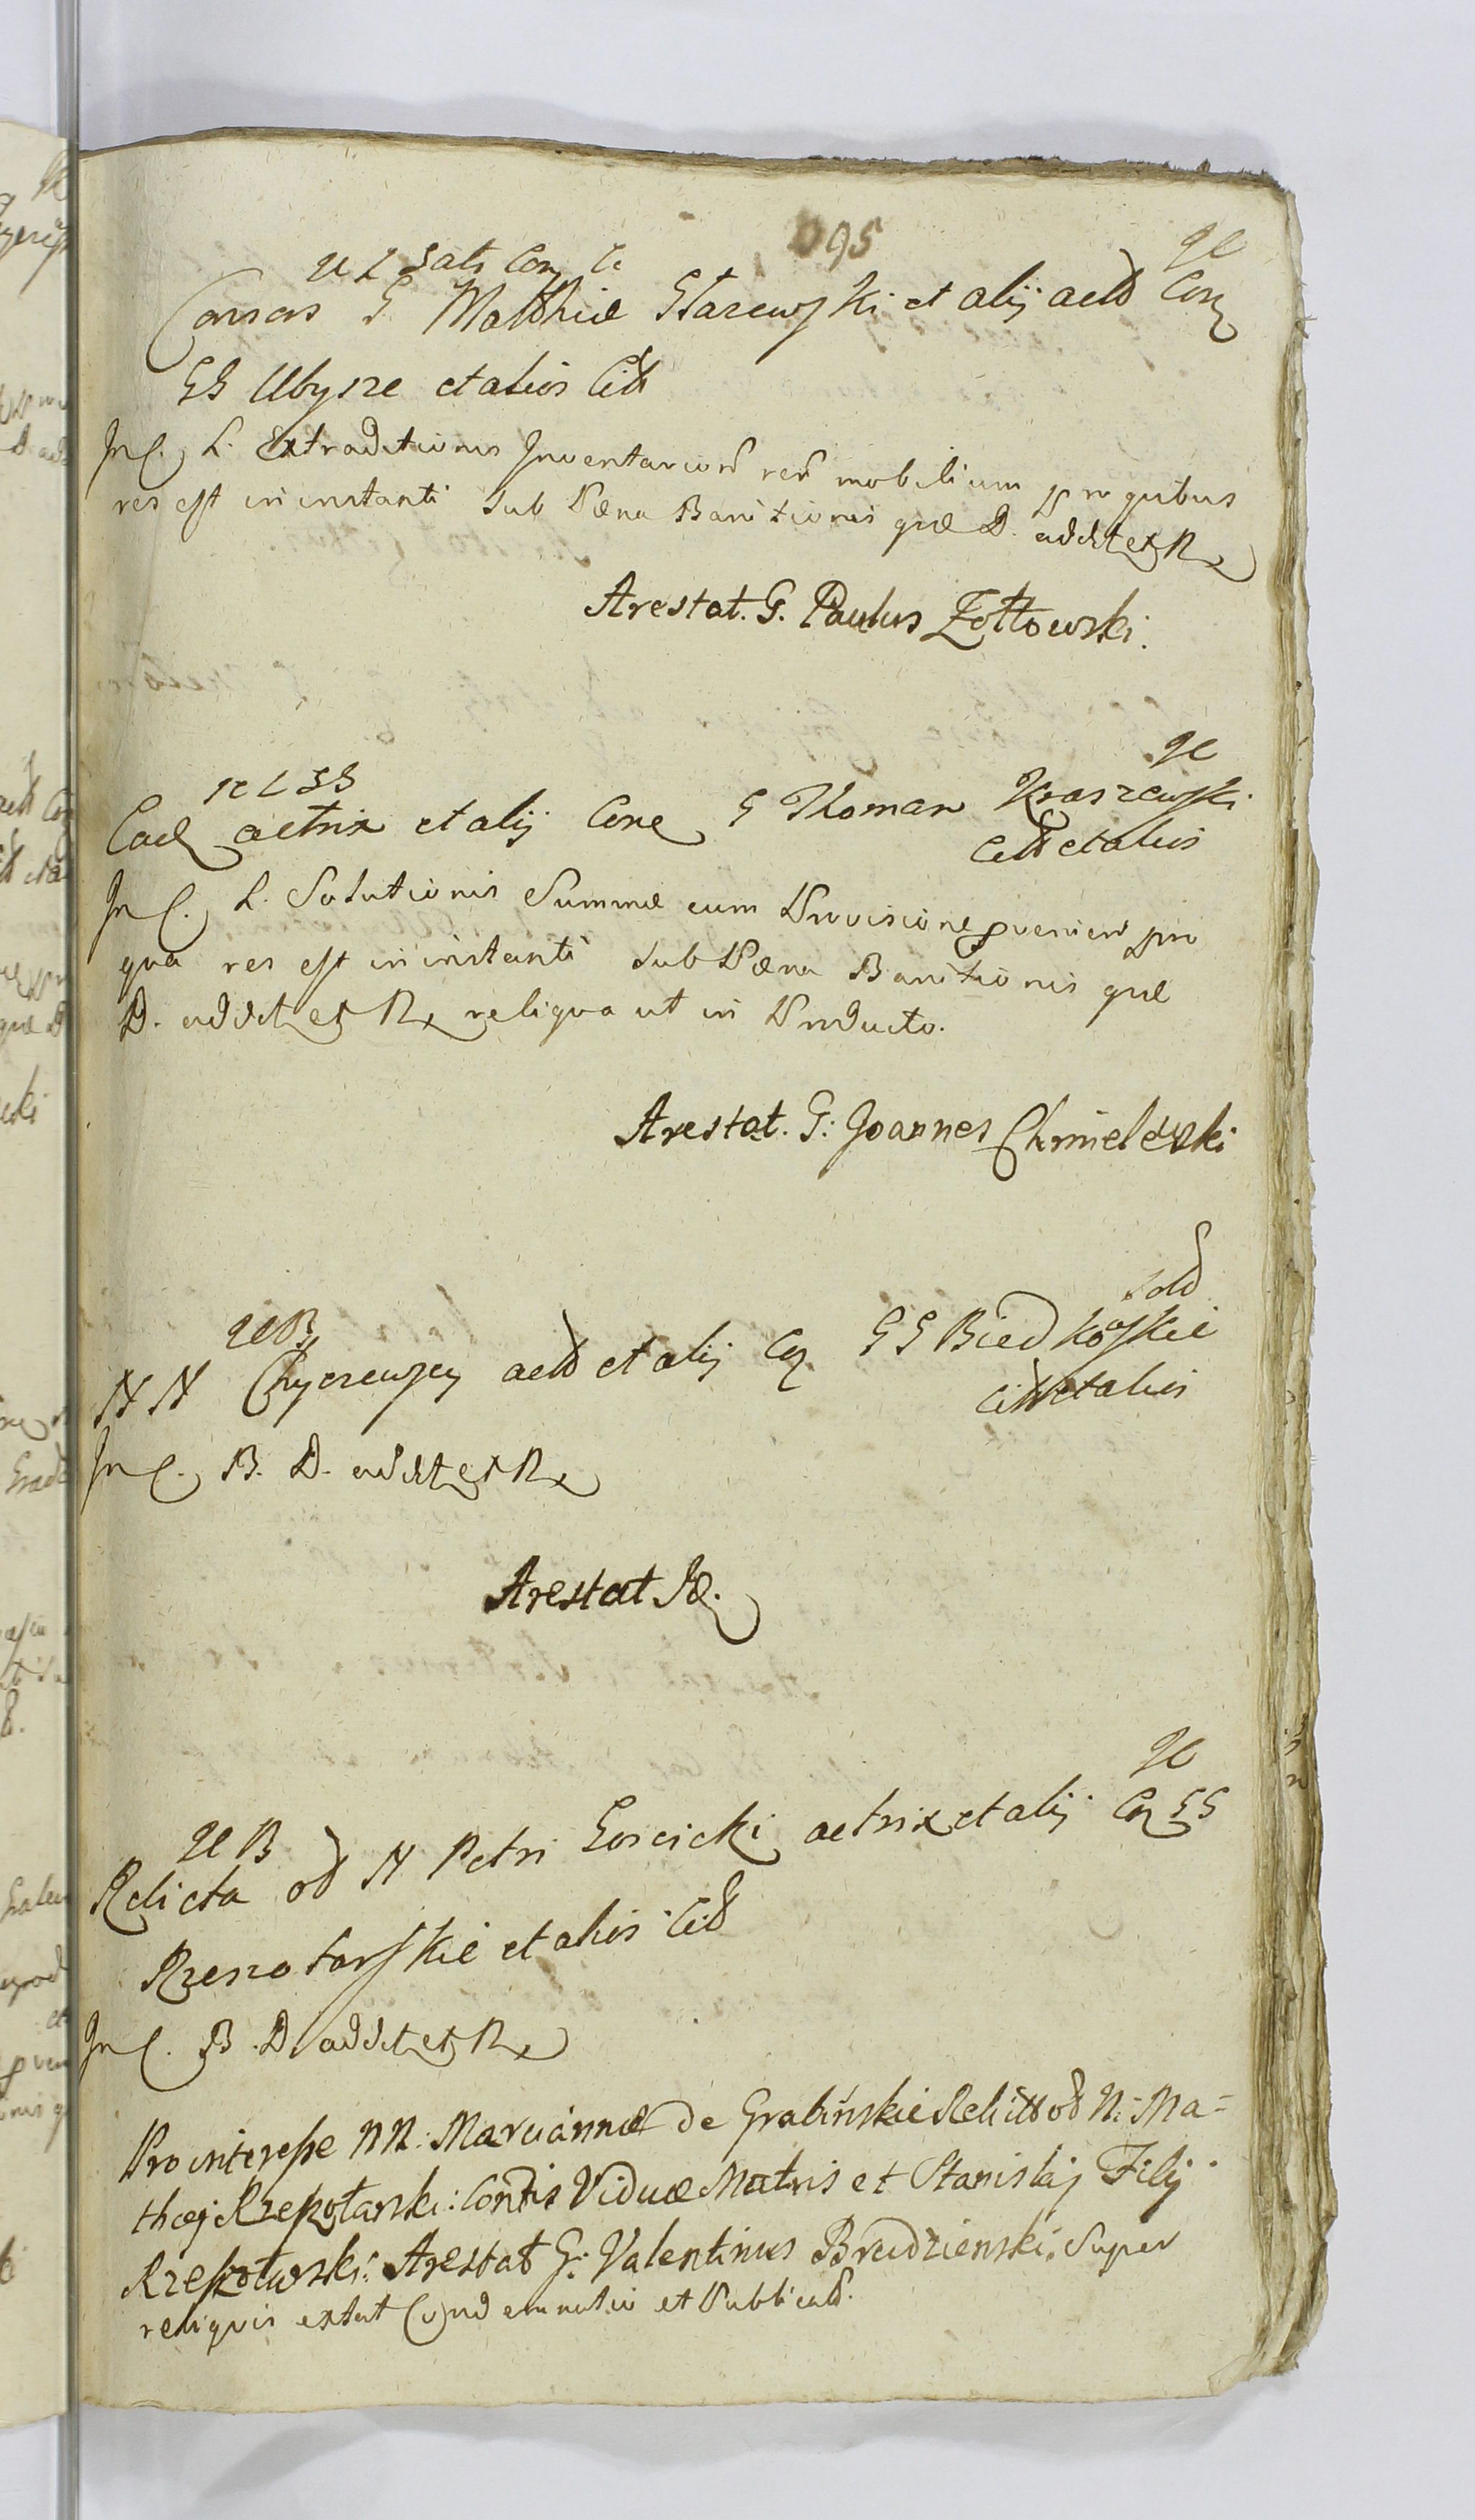 095
Consors G Matthiæ Starewski et alij actd Con
GG Ubysze et alios Citt
In C. L. Extraditionis Inventariord rerd mobilium pro quibus
res est in instanti sub Pæna Banitionis quæ D. addit et R
Arestat. G. Paulus Zołtowski.
Ead actrix et alij Cone G Thomam Kraszewski
Citt et alios
In C. L. Solutionis Summæ cum Provisione pvenien pro
qua res est in instanti sub Pæna Banitionis quæ
D. addit et R reliqua ut in Producto.
Arestat. G: Joannes Chmielewski
NN actd et alij Con GG Biedkoskie
Citt et alios
In C. B. D. addit et R
Arestat
Relicta od N Petri Goscicki actrix et alij Con GG
Rzeszotarskie et alios Citt
In C. B. D addit et R
Pro interesse NN: Mariánnæ de Grabińskie Relictt od N: Ma=
thæj Rzeszotarski: Viduæ Matris et Stanislaj Filij
Rzeszotarski: Arestat G: Valentinus Brudzienski. Super
reliquis extat Cond et Publicatd.